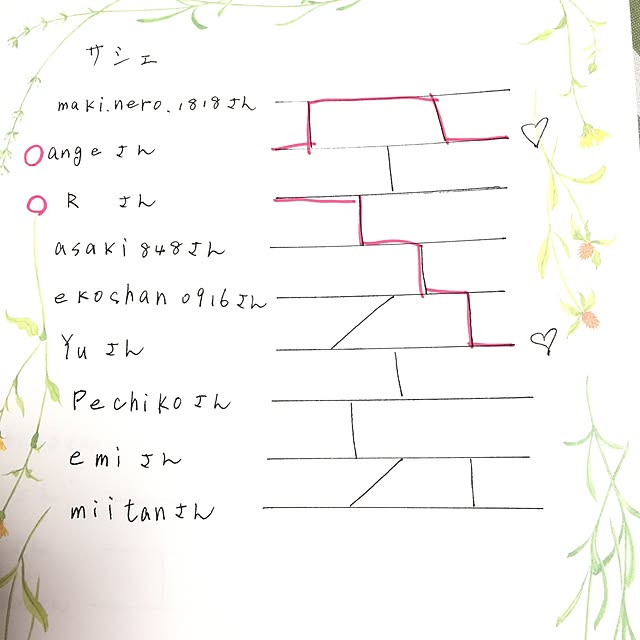 サシェ
maki.nero.1818さん
angeさん
R さん
asaki848さん
ekoshan0916さん
Yuさん
Pechikoさん
emiさん
miitanさん